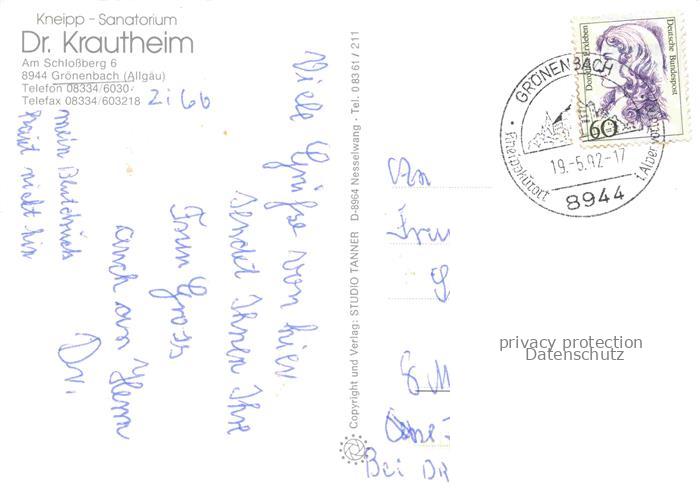 Kneipp - Sanatorium
Dr. Krautheim
Am Schloßberg 6
8944 Grönenbach (Allgäu)
Telefon 08334/6030·
Telefax 08334/603218
Viele Grüße von hier
sendet Ihnen Ihre
Frau Gross
auch an Herrn
Dr.
mein Blutdruck
haut nicht hin
Copyright und Verlag: STUDIO TANNER D-8964 Nesselwang · Tel. 0 83 61 / 211
Deutsche Bundespost
60
GRÖNENBACH
Kneippkurort
19.-5.92-17
8944
An
Frau
privacy protection
Datenschutz
Bei